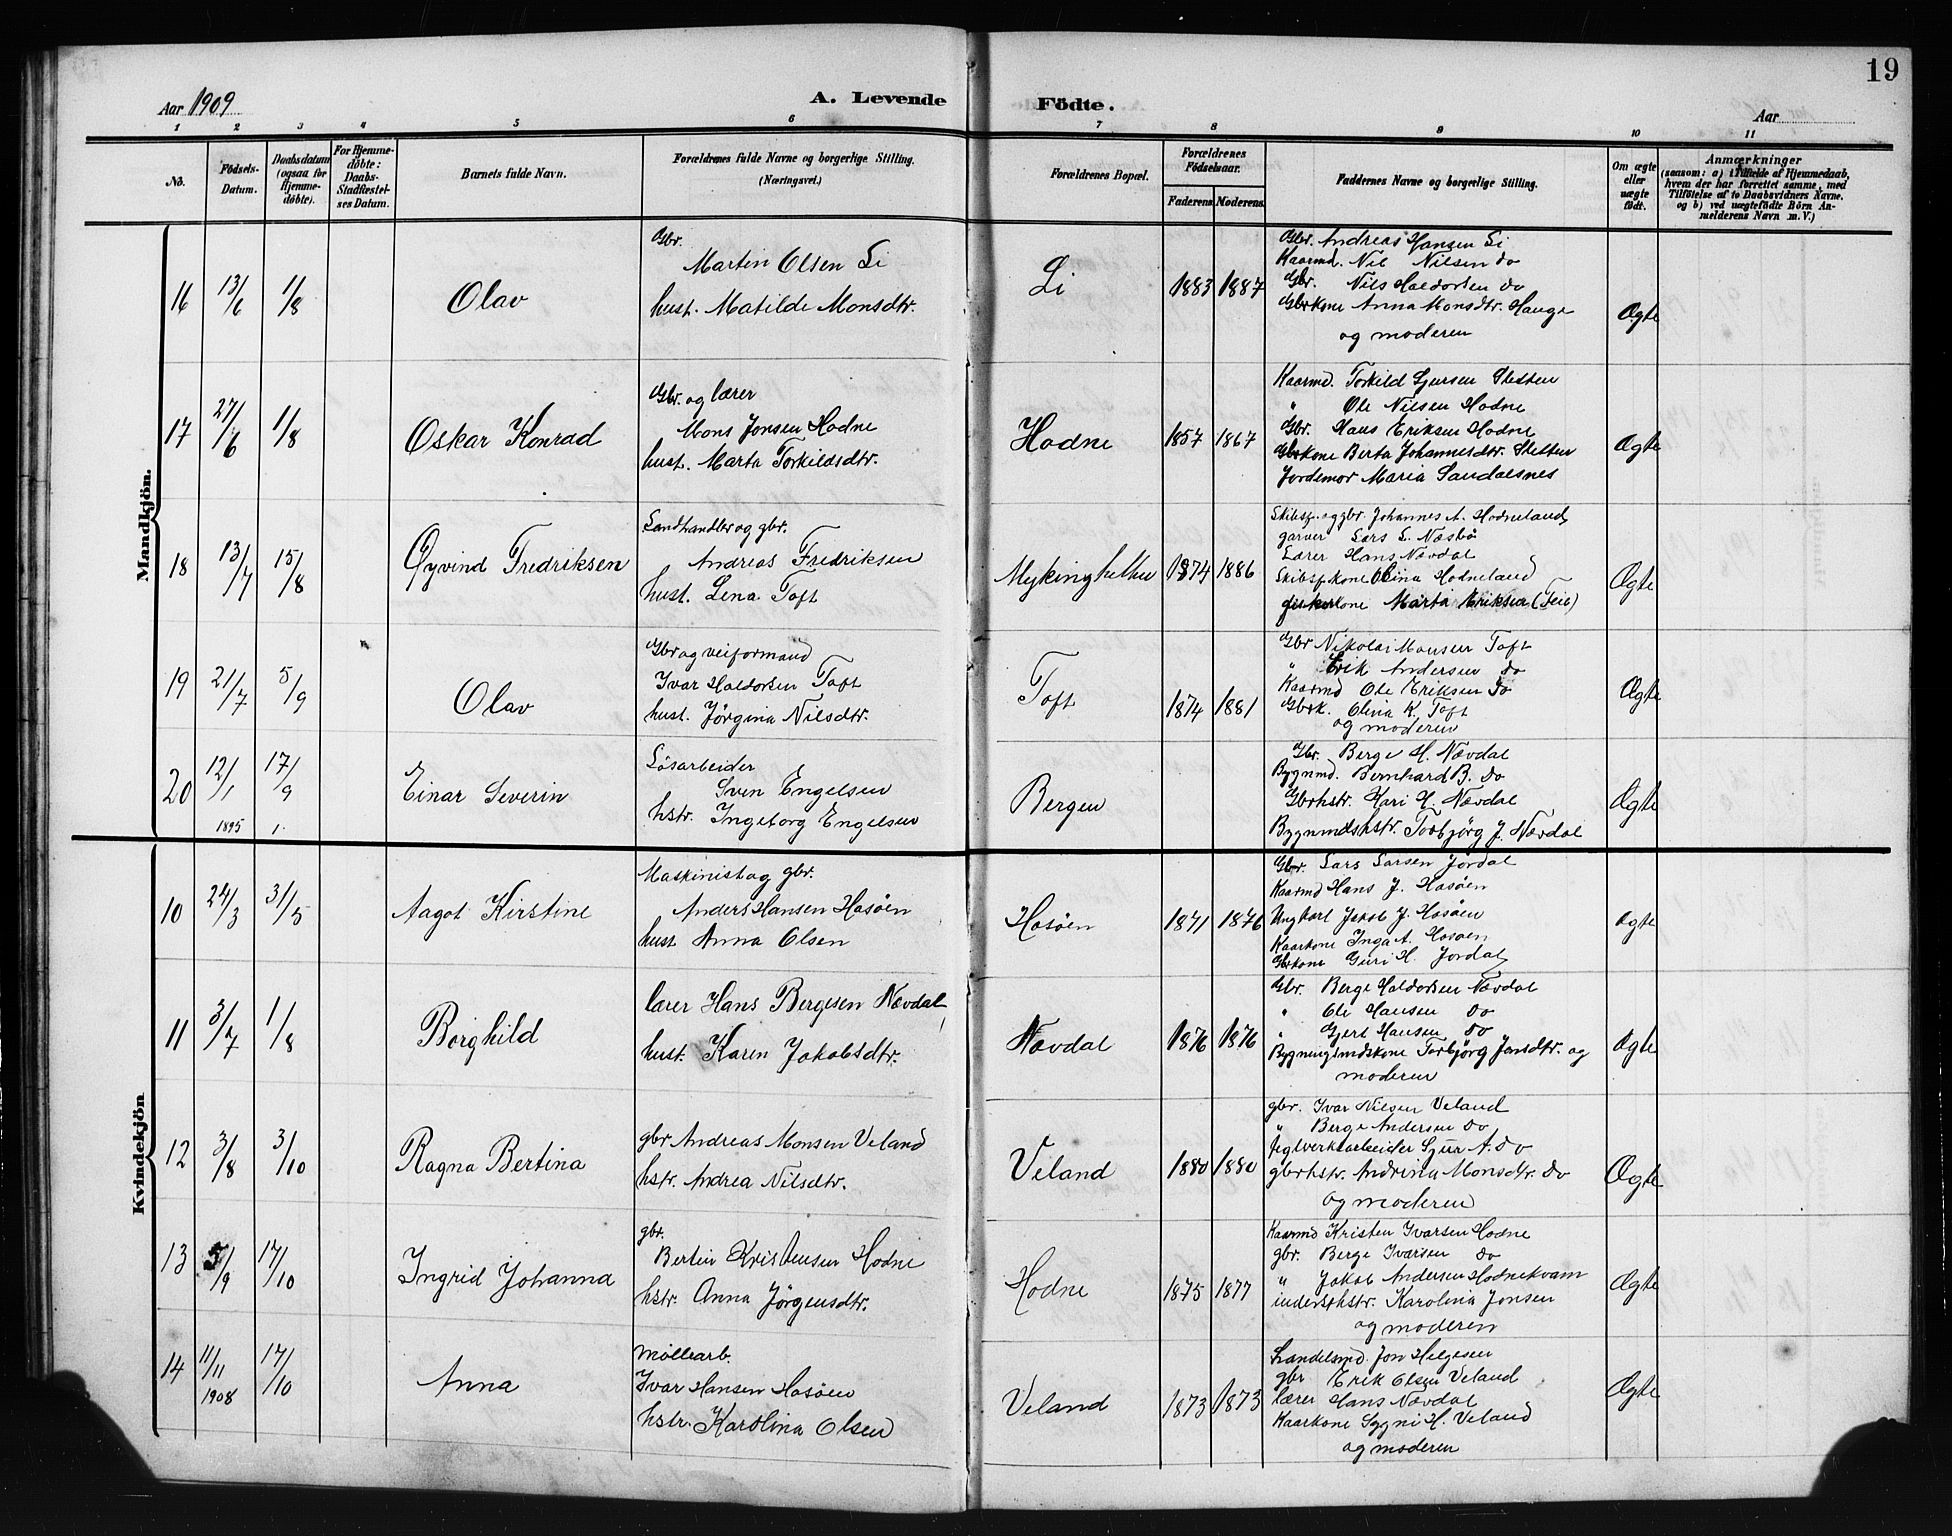 19
Aar 1909
A. Levende Födte.
Aar
1 2 3 4 5 6 7 8 9 10 11
No.
Födsels-Datum.
Daabsdatum (ogsaa for Hjemme-döbte).
For Hjemme-döbte: Daabs-Stadfæstel-ses Datum.
Barnets fulde Navn.
Forældrenes fulde Navne og borgerlige Stilling. (Næringsvei.)
Forældrenes Bopæl.
Forældrenes Födselsaar.
Faderens Moderens
Faddernes Navne og borgerlige Stilling.
Om ægte eller uægte födt.
Anmærkninger
(saasom: a) i Tilfælde af Hjemmedaab, hvem der har forrettet samme, med Tilföielse af to Daabsvidners Navne, og b) ved uægtefödte Börn An-melderens Navn m. V.)
Mandkjön.
16 13/6 1/8 Olav
Gbr.
Martin Olsen Li
hust. Matilde Monsdtr.
Li 1883 1887
Gbr. Andreas Hansen Li
Kaarmd. Nils Nilsen do
Gbr. Nils Haldorsen do
Gbrkone Anna Monsdtr. Hauge
og moderen
Ægte
17 27/6 1/8 Oskar Konrad
Gbr. og lærer
Mons Jonsen Hodne
hust. Marta Torkildsdtr.
Hodne 1857 1867
Kaarmd. Torkild Gjursen Sletten
" Ole Nilsen Hodne
Gbr. Hans Eriksen Hodne
Gbrkone Berta Johannesdtr. Sletten
Jordemor Maria Sandalsnes
Ægte
18 13/7 15/8 Øyvind Fredriksen
Landhandler og gbr.
Andreas Fredriksen
hust. Lena Toft
Myking 1874 1886
Skibsf. og gbr. Johannes A. Hodneland
garver Lars L. Næsbö
Lærer Hans Nævdal
Skibsf.kone Olina Hodneland
fiskerkone Marta Eriksen (Feie)
Ægte
19 21/7 5/9 Olav
Gbr og veiformand
Ivar Haldorsen Toft
hust. Jörgina Nilsdtr.
Toft 1874 1881
Gbr Nikolai Monsen Toft
" Erik Andersen do
Kaarmd Ole Eriksen do
Gbrk. Olina K. Toft
og moderen
Ægte
20 12/1 1895 17/9 Einar Severin
Lösarbeider
Sven Engelsen
hstr. Ingeborg Engelsen
Bergen
Gbr. Berge H. Nævdal
Bygnmd. Bernhard B. do
Gbrhstr. Kari H. Nævdal
Bygnmdshstr. Torbjörg J. Nævdal
Ægte
Kvindekjön
10 24/3 31/5 Aagot Kirstine
Maskinist og gbr.
Anders Hansen Hosöen
hust Anna Olsen
Hosöen 1871 1876
Gbr. Lars Larsen Jördal
Kaarmd Hans J. Hosöen
Ungkarl Jakob J. Hosöen
Kaarkone Inga A. Hosöen
Gbrkone Guri H. Jordal
ægte
11 3/7 1/8 Borghild
lærer Hans Bergesen Nævdal
hust. Karen Jakobsdtr.
Nævdal 1876 1876
Gbr. Berge Haldorsen Nævdal
" Ole Hansen do
" Gjert Hansen do
Bygningsmdskone Torbjörg Jonsdtr. og
moderen
Ægte
12 3/8 3/10 Ragna Bertina
gbr Andreas Monsen Veland
hstr. Andrea Nilsdtr.
Veland 1880 1880
gbr. Ivar Nilsen Veland
" Berge Andersen do
Teglverksarbeider Gjur A. do
gbrhstr. Andrina Monsdtr. do
og moderen
Ægte
13 5/9 17/10 Ingrid Johanna
gbr.
Bertin Kristensen Hodne
hstr. Anna Jörgensdtr.
Hodne 1875 1877
Kaarmd Kristen Ivarsen Hodne
gbr. Berge Ivarsen do
" Jakob Andersen Hodnekvam
inderstehstr. Karolina Jonsen
og moderen
Ægte
14 11/11 1908 17/10 Anna
Möllearb.
Ivar Hansen Hosöen
hstr. Karolina Olsen
Veland 1873 1873
Handelsmd. Jon Helgesen
gbr Erik Olsen Veland
lærer Hans Nævdal
Kaarkone Sygni H. Veland
og moderen
Ægte